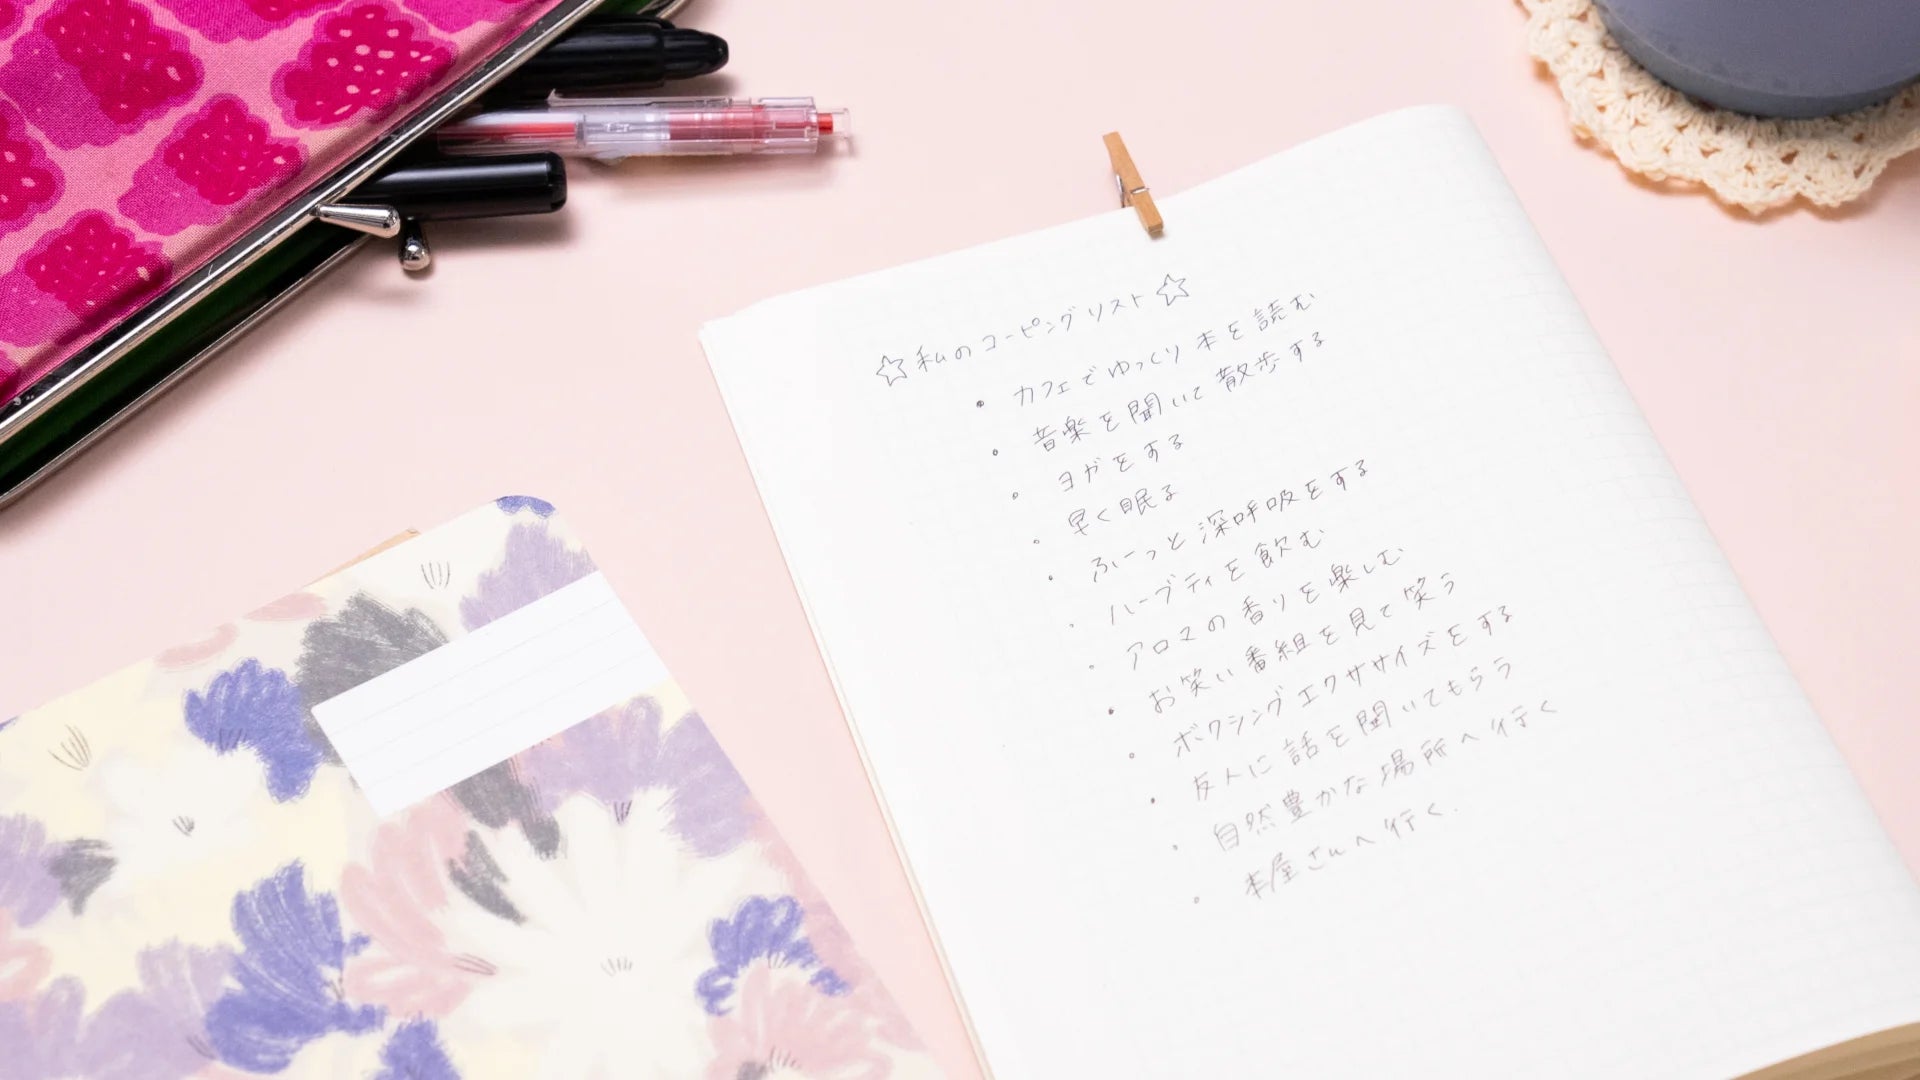 ☆私のコーピングリスト☆
・カフェでゆっくり本を読む
・音楽を聞いて散歩する
・ヨガをする
・早く眠る
・ふーっと深呼吸をする
・ハーブティを飲む
・アロマの香りを楽しむ
・お笑い番組を見て笑う
・ボクシングエクササイズをする
・友人に話を聞いてもらう
・自然豊かな場所へ行く
・本屋さんへ行く.